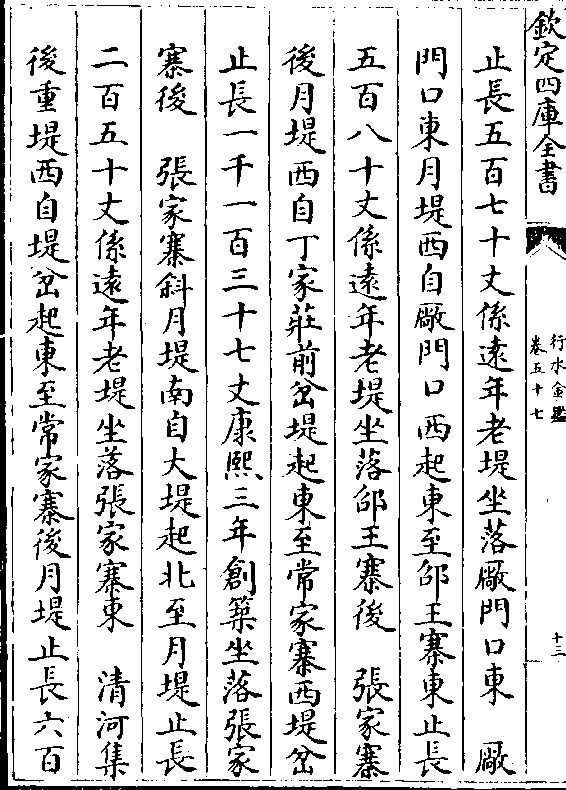 欽定四庫全書
行水金鑑
卷五十七
十三
止長五百七十丈係遠年老堤坐落厰門口東　厰
門口東月堤西自厰門口西起東至邵王寨東止長
五百八十丈係遠年老堤坐落邵王寨後　張家寨
後月堤西自丁家莊前岔堤起東至常家寨西堤岔
止長一千一百三十七丈康熙三年創築坐落張家
寨後　張家寨斜月堤南自大堤起北至月堤止長
二百五十丈係遠年老堤坐落張家寨東　清河集
後重堤西自堤岔起東至常家寨後月堤止長六百